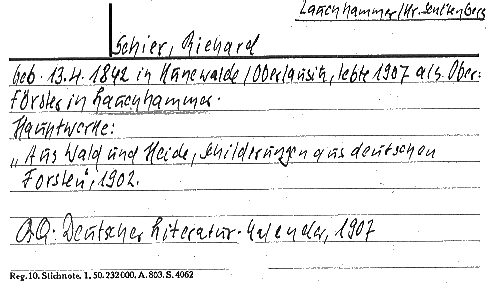 Lauchhammer/Kr. Senftenberg
Schier, Richard
geb. 13.4.1842 in Kunewalde/Oberlausitz, lebte 1907 als Ober-
förster in Lauchhammer.
Hauptwerke:
„Aus Wald und Heide, Schilderungen aus deutschen
Forsten", 1902.
QQ: Deutscher Literatur-Kalender, 1907
Reg. 10. Stichnote. 1. 50. 232 000. A. 803. S. 4062